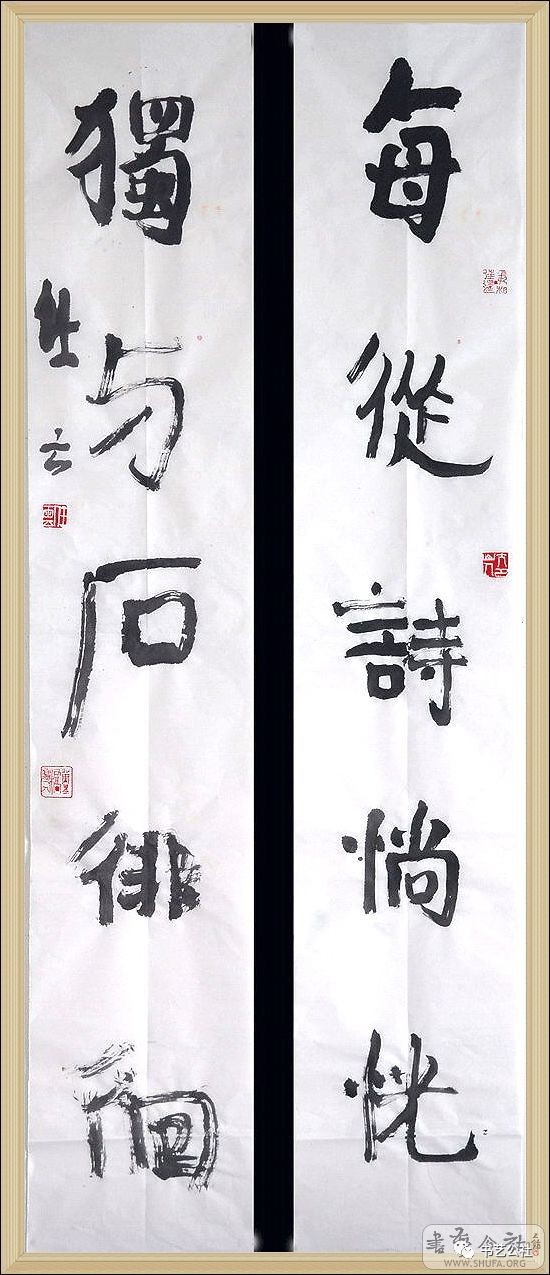 每從詩惝恍
獨与石徘徊
书艺公社
WWW.SHUFA.ORG